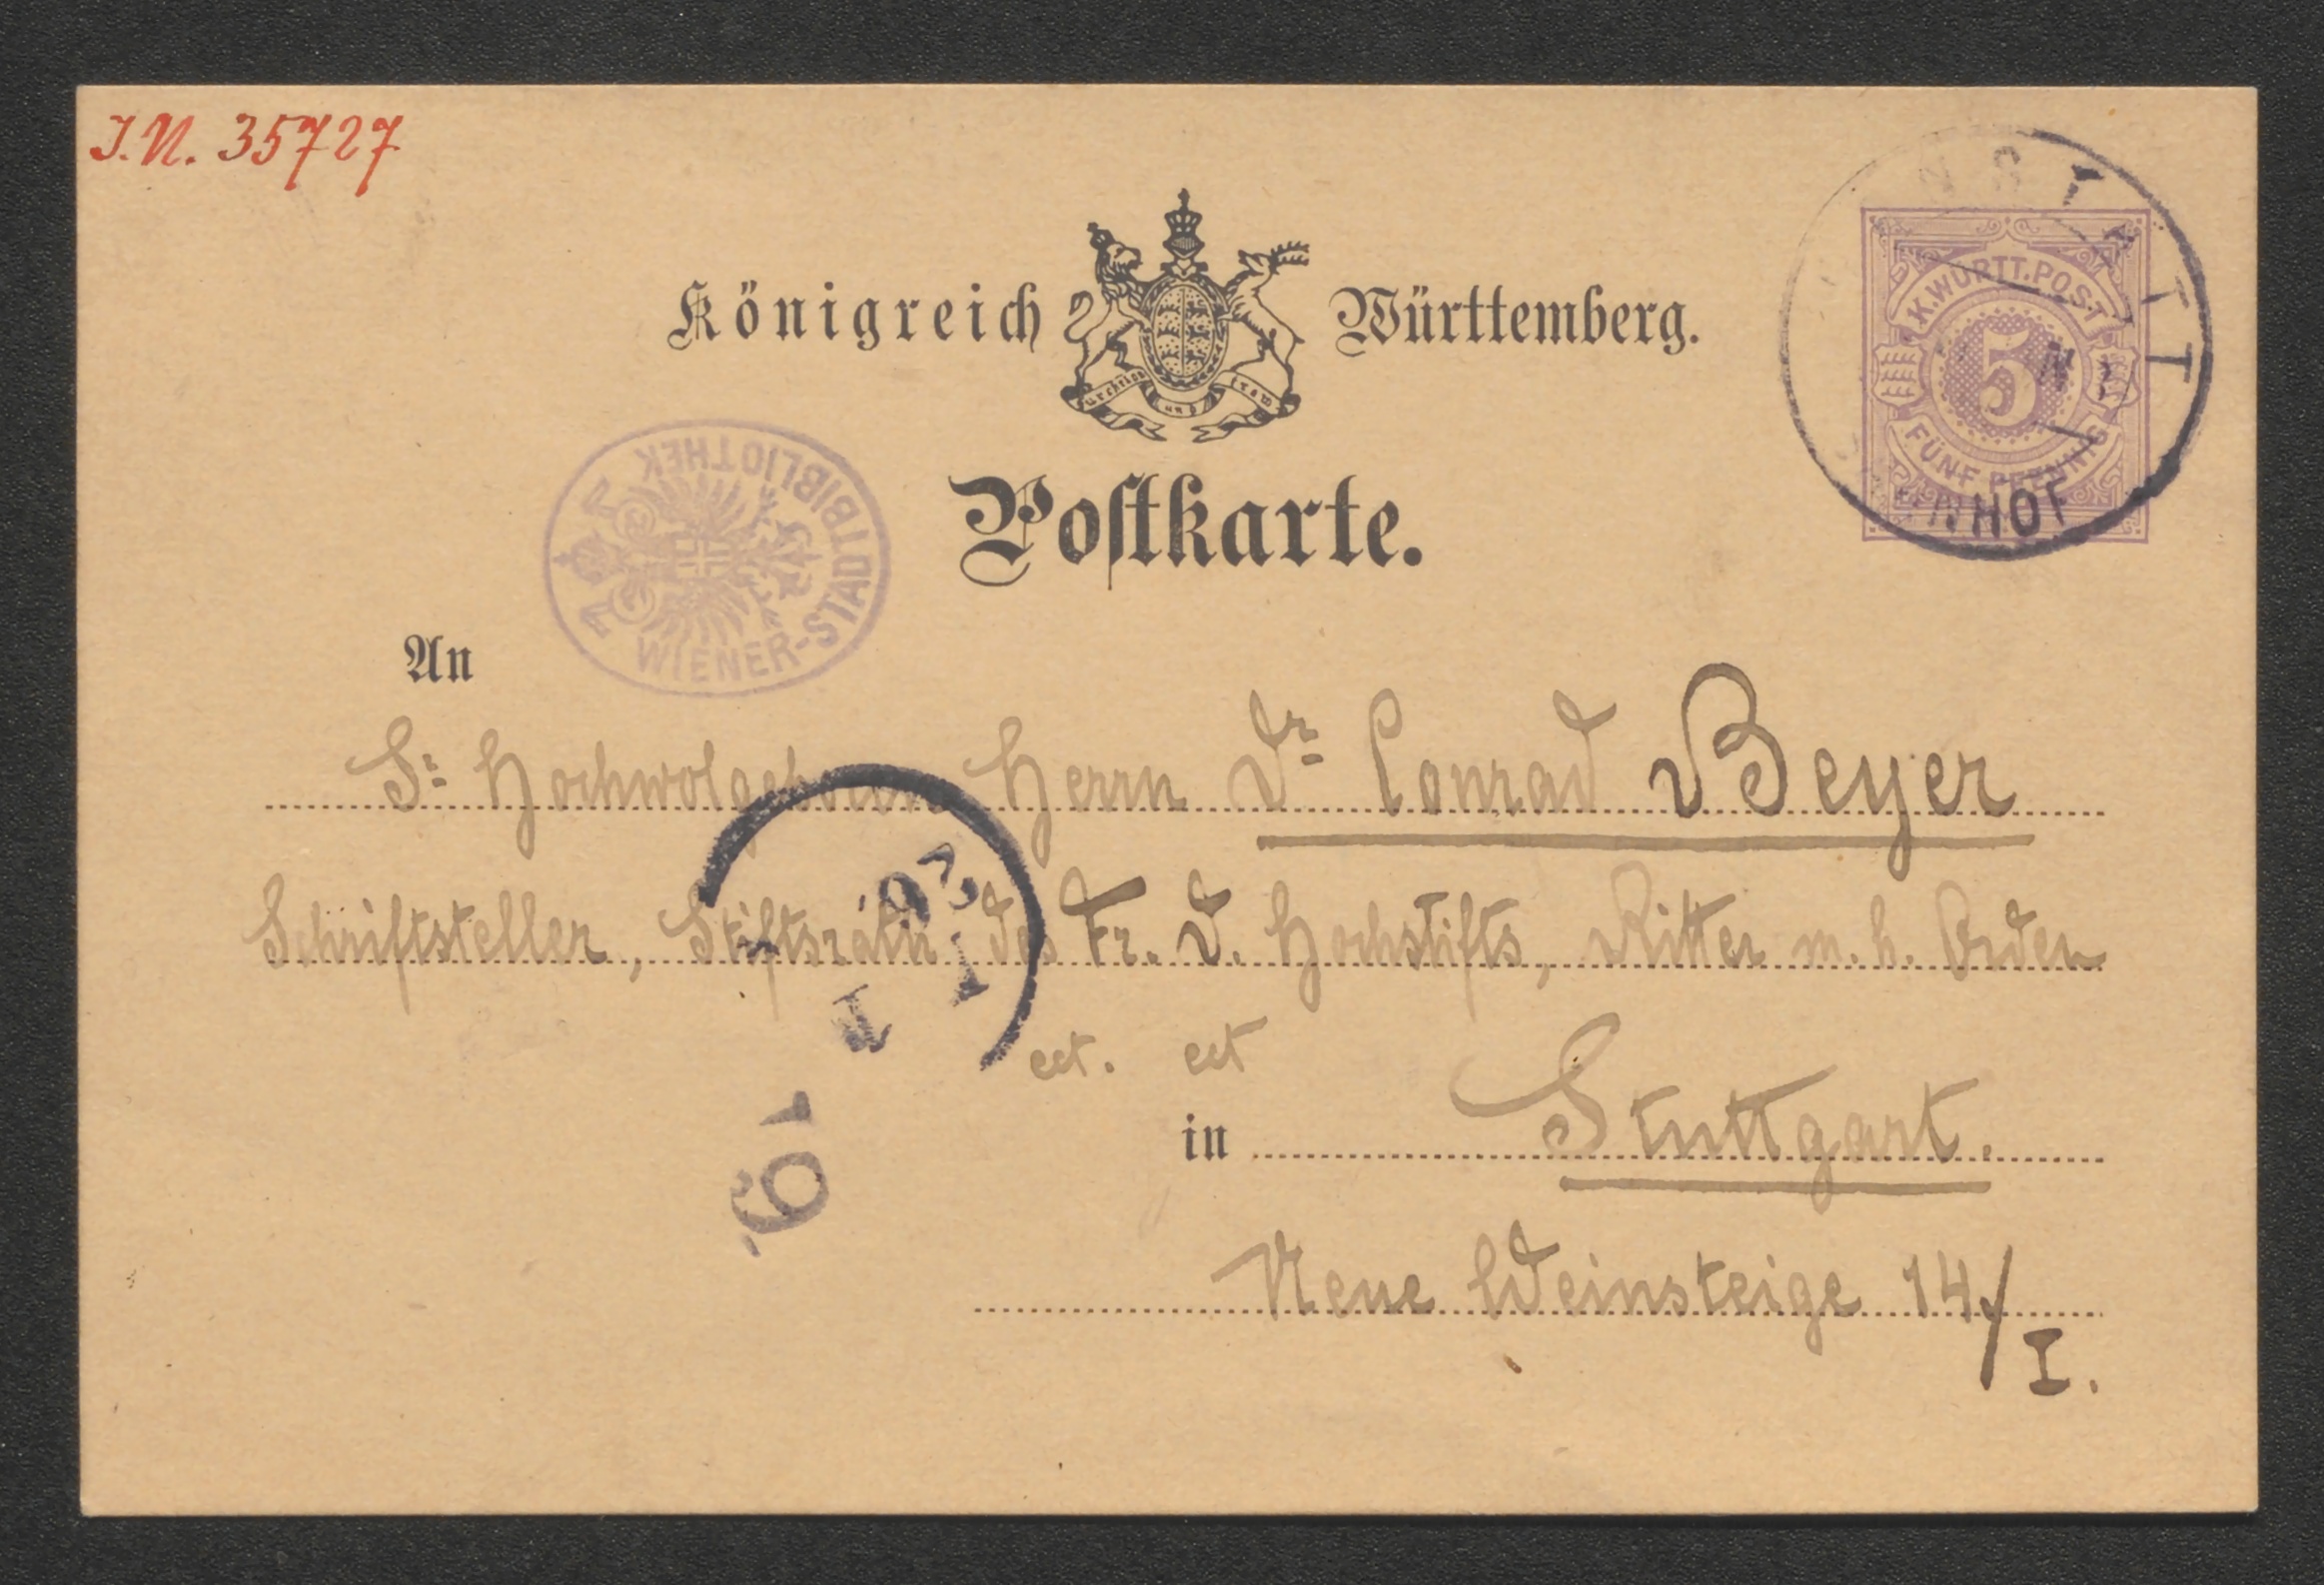 I.N. 35727
NSTATT
K.WÜRTT.POST
5
FÜNF PFENNIG
NHOF
Königreich Württemberg.
furchtlos und trew
WIENER-STADTBIBLIOTHEK
Postkarte.
An
Sr. Hochwolgeboren Herrn Dr. Conrad Beyer
Schriftsteller, Stiftsrath des Fr. D. Hochstifts, Ritter m. h. Orden
ect. ect
in Stuttgart.
Neue Weinsteige 14/I.